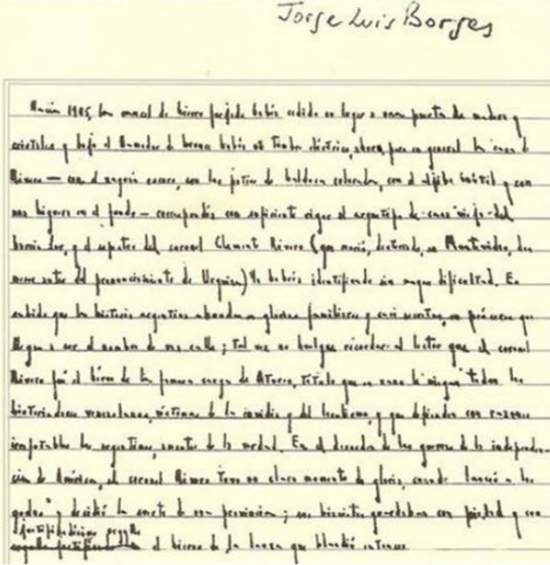 Jorge Luis Borges
Hacia 1905, la cancel de hierro forjado había cedido su lugar a una puerta de madera y
cristales y bajo el llamador de bronce había un timbre eléctrico, ahora, pero en general la casa de
Rivero — con el zaguán oscuro, con los patios de baldosa colorada, con el aljibe inútil y con
una higuera en el fondo — correspondía con suficiente rigor al arquetipo de casa vieja del
barrio Sur, y el espectro del coronel Clemente Rivero (que murió, desterrado, en Montevideo,
nueve antes del pronunciamiento de Urquiza) la habría identificado sin mayor dificultad. Es
sabido que la historia argentina abunda en glorias familiares y casi secretas, en próceres que
llegan a ser el nombre de una calle; tal vez no huelgue recordar al lector que el coronel
Rivero fué el héroe de la primera carga de título que en vano le niegan todos los
historiadores venezolanos, víctimas de la envidia y del localismo, y que defienden con razones
irrefutables los argentinos, amantes de la verdad. En el decurso de las guerras de la independen-
cia de América, el coronel Rivero tuvo un claro momento de gloria, cuando lanceó a los
godos y decidió la suerte de una provincia; sus biznietos guardaban con piedad y con
justificadísimo orgullo
orgullo el hierro de la lanza que blandió entonces